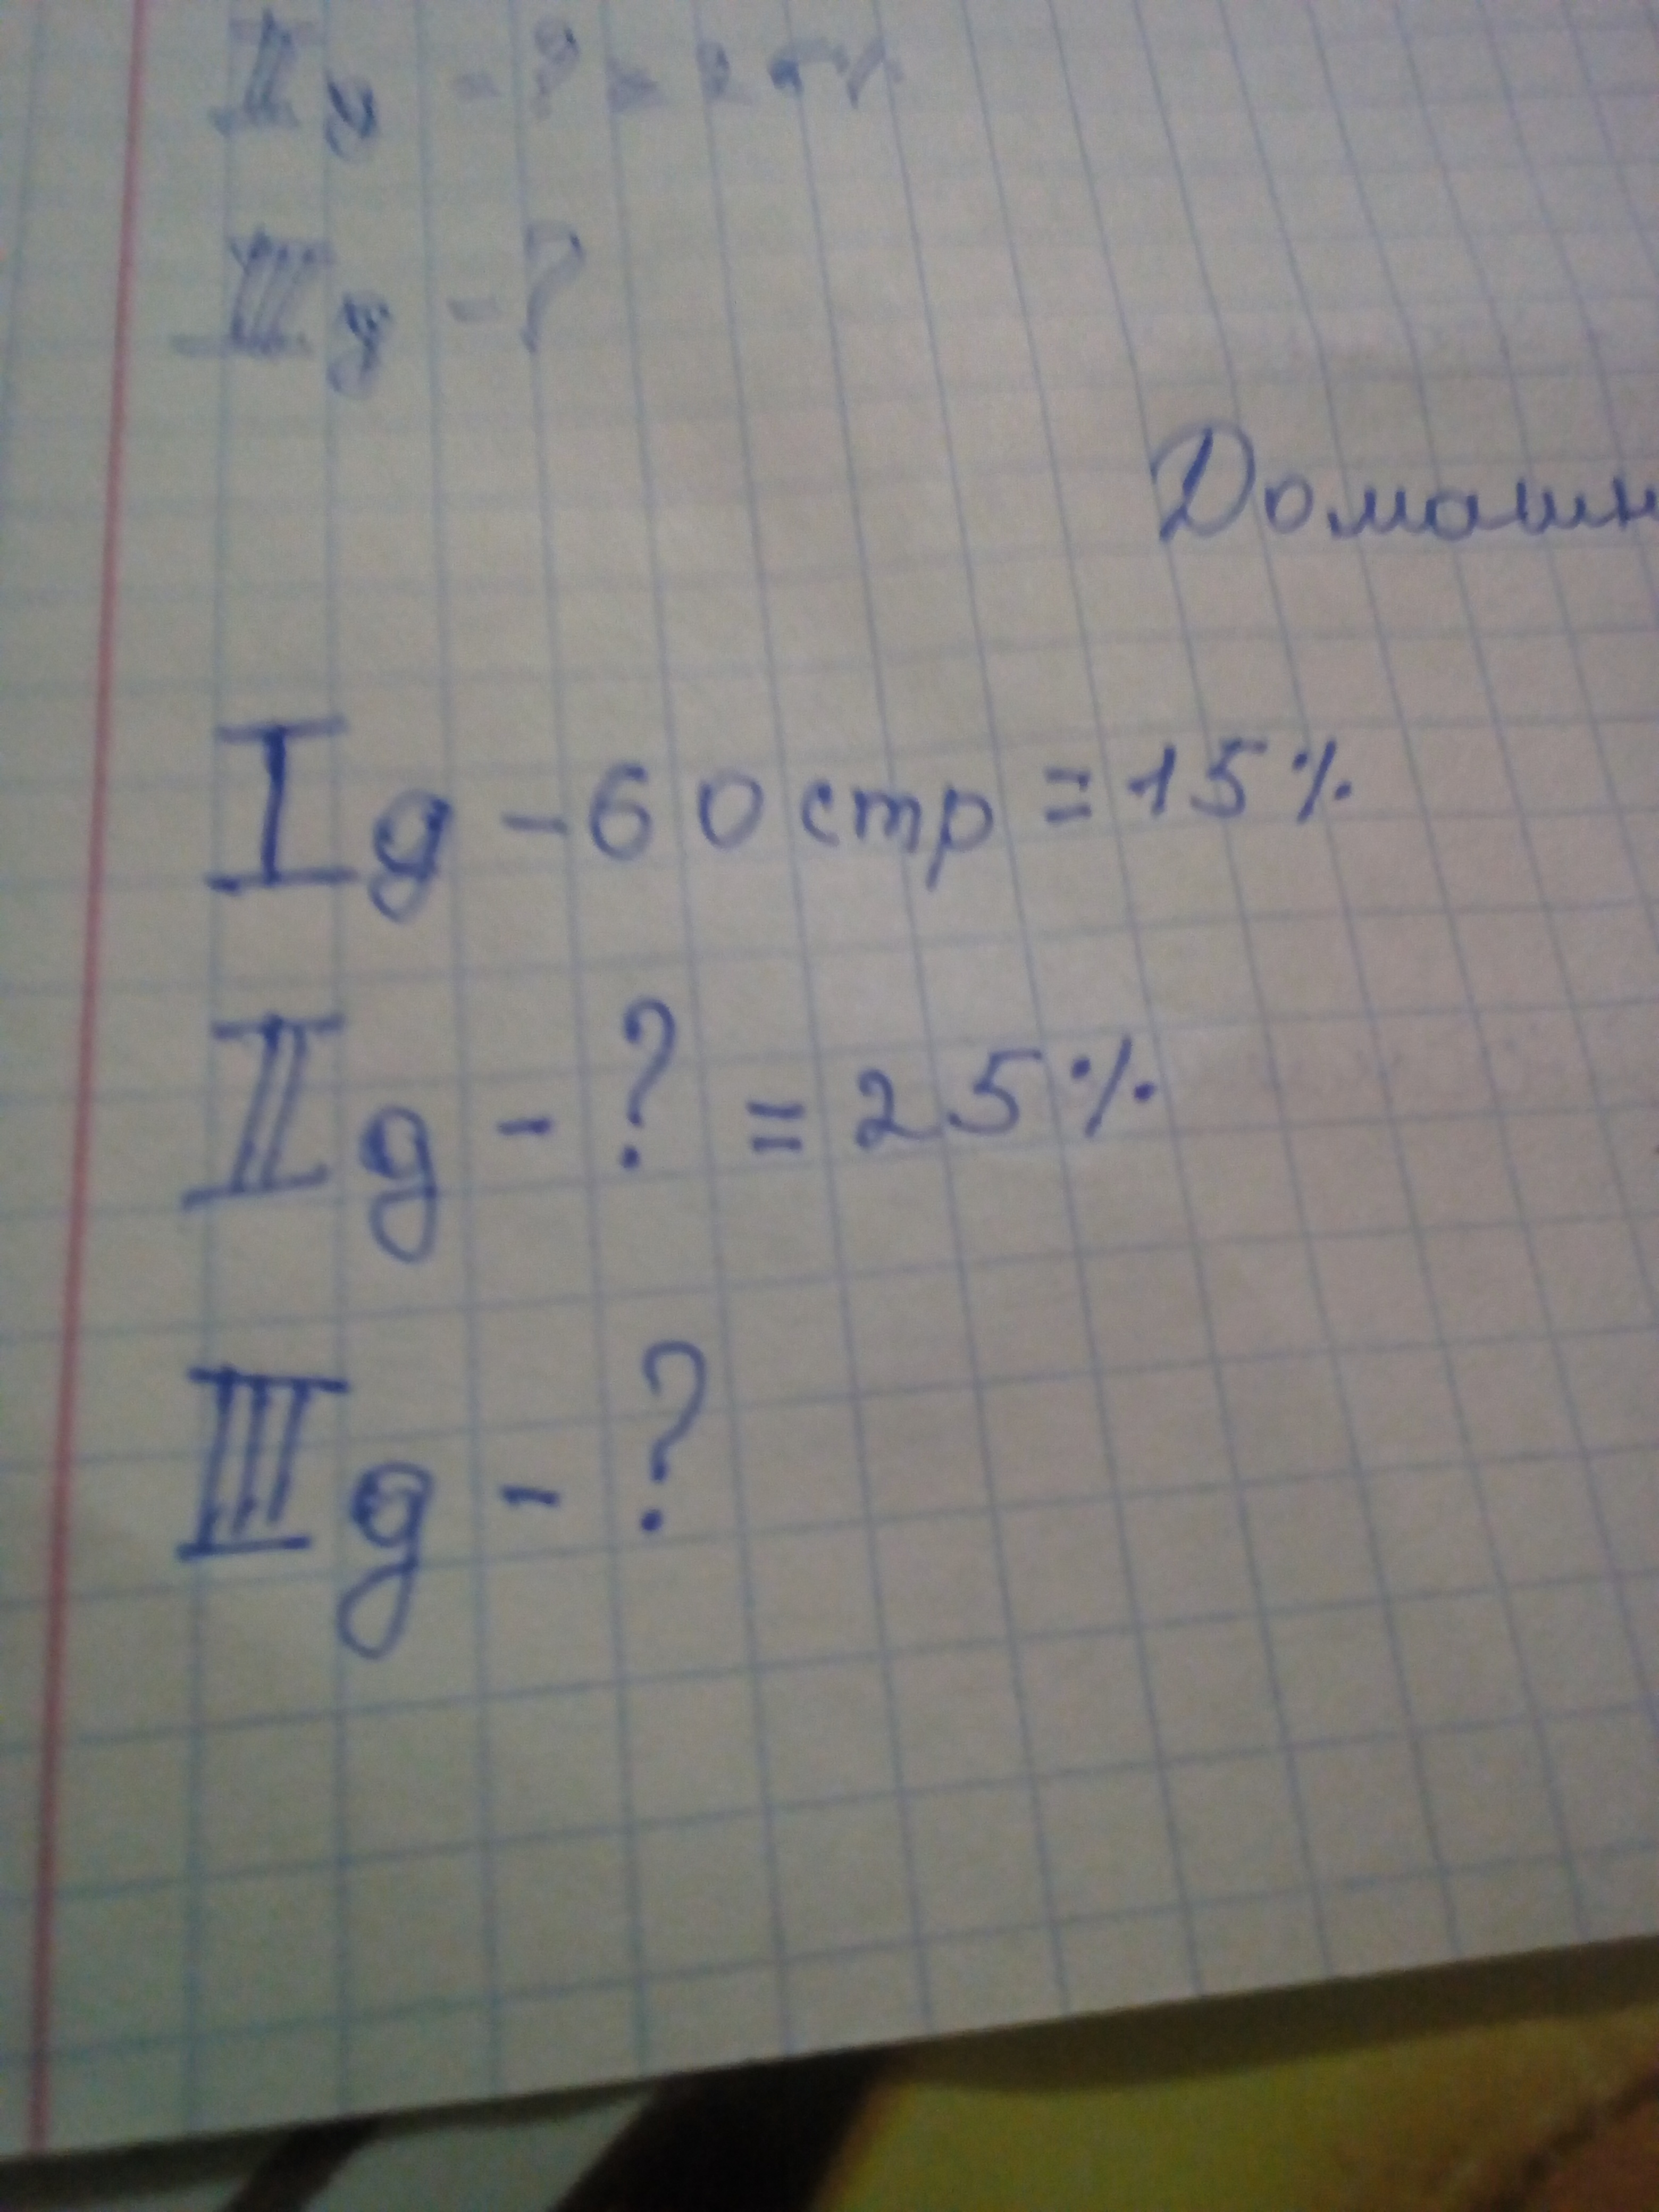 II д - ? = 25%
III д - ?
Домашн
I д - 60 стр = 15%
II д - ? = 25%
III д - ?